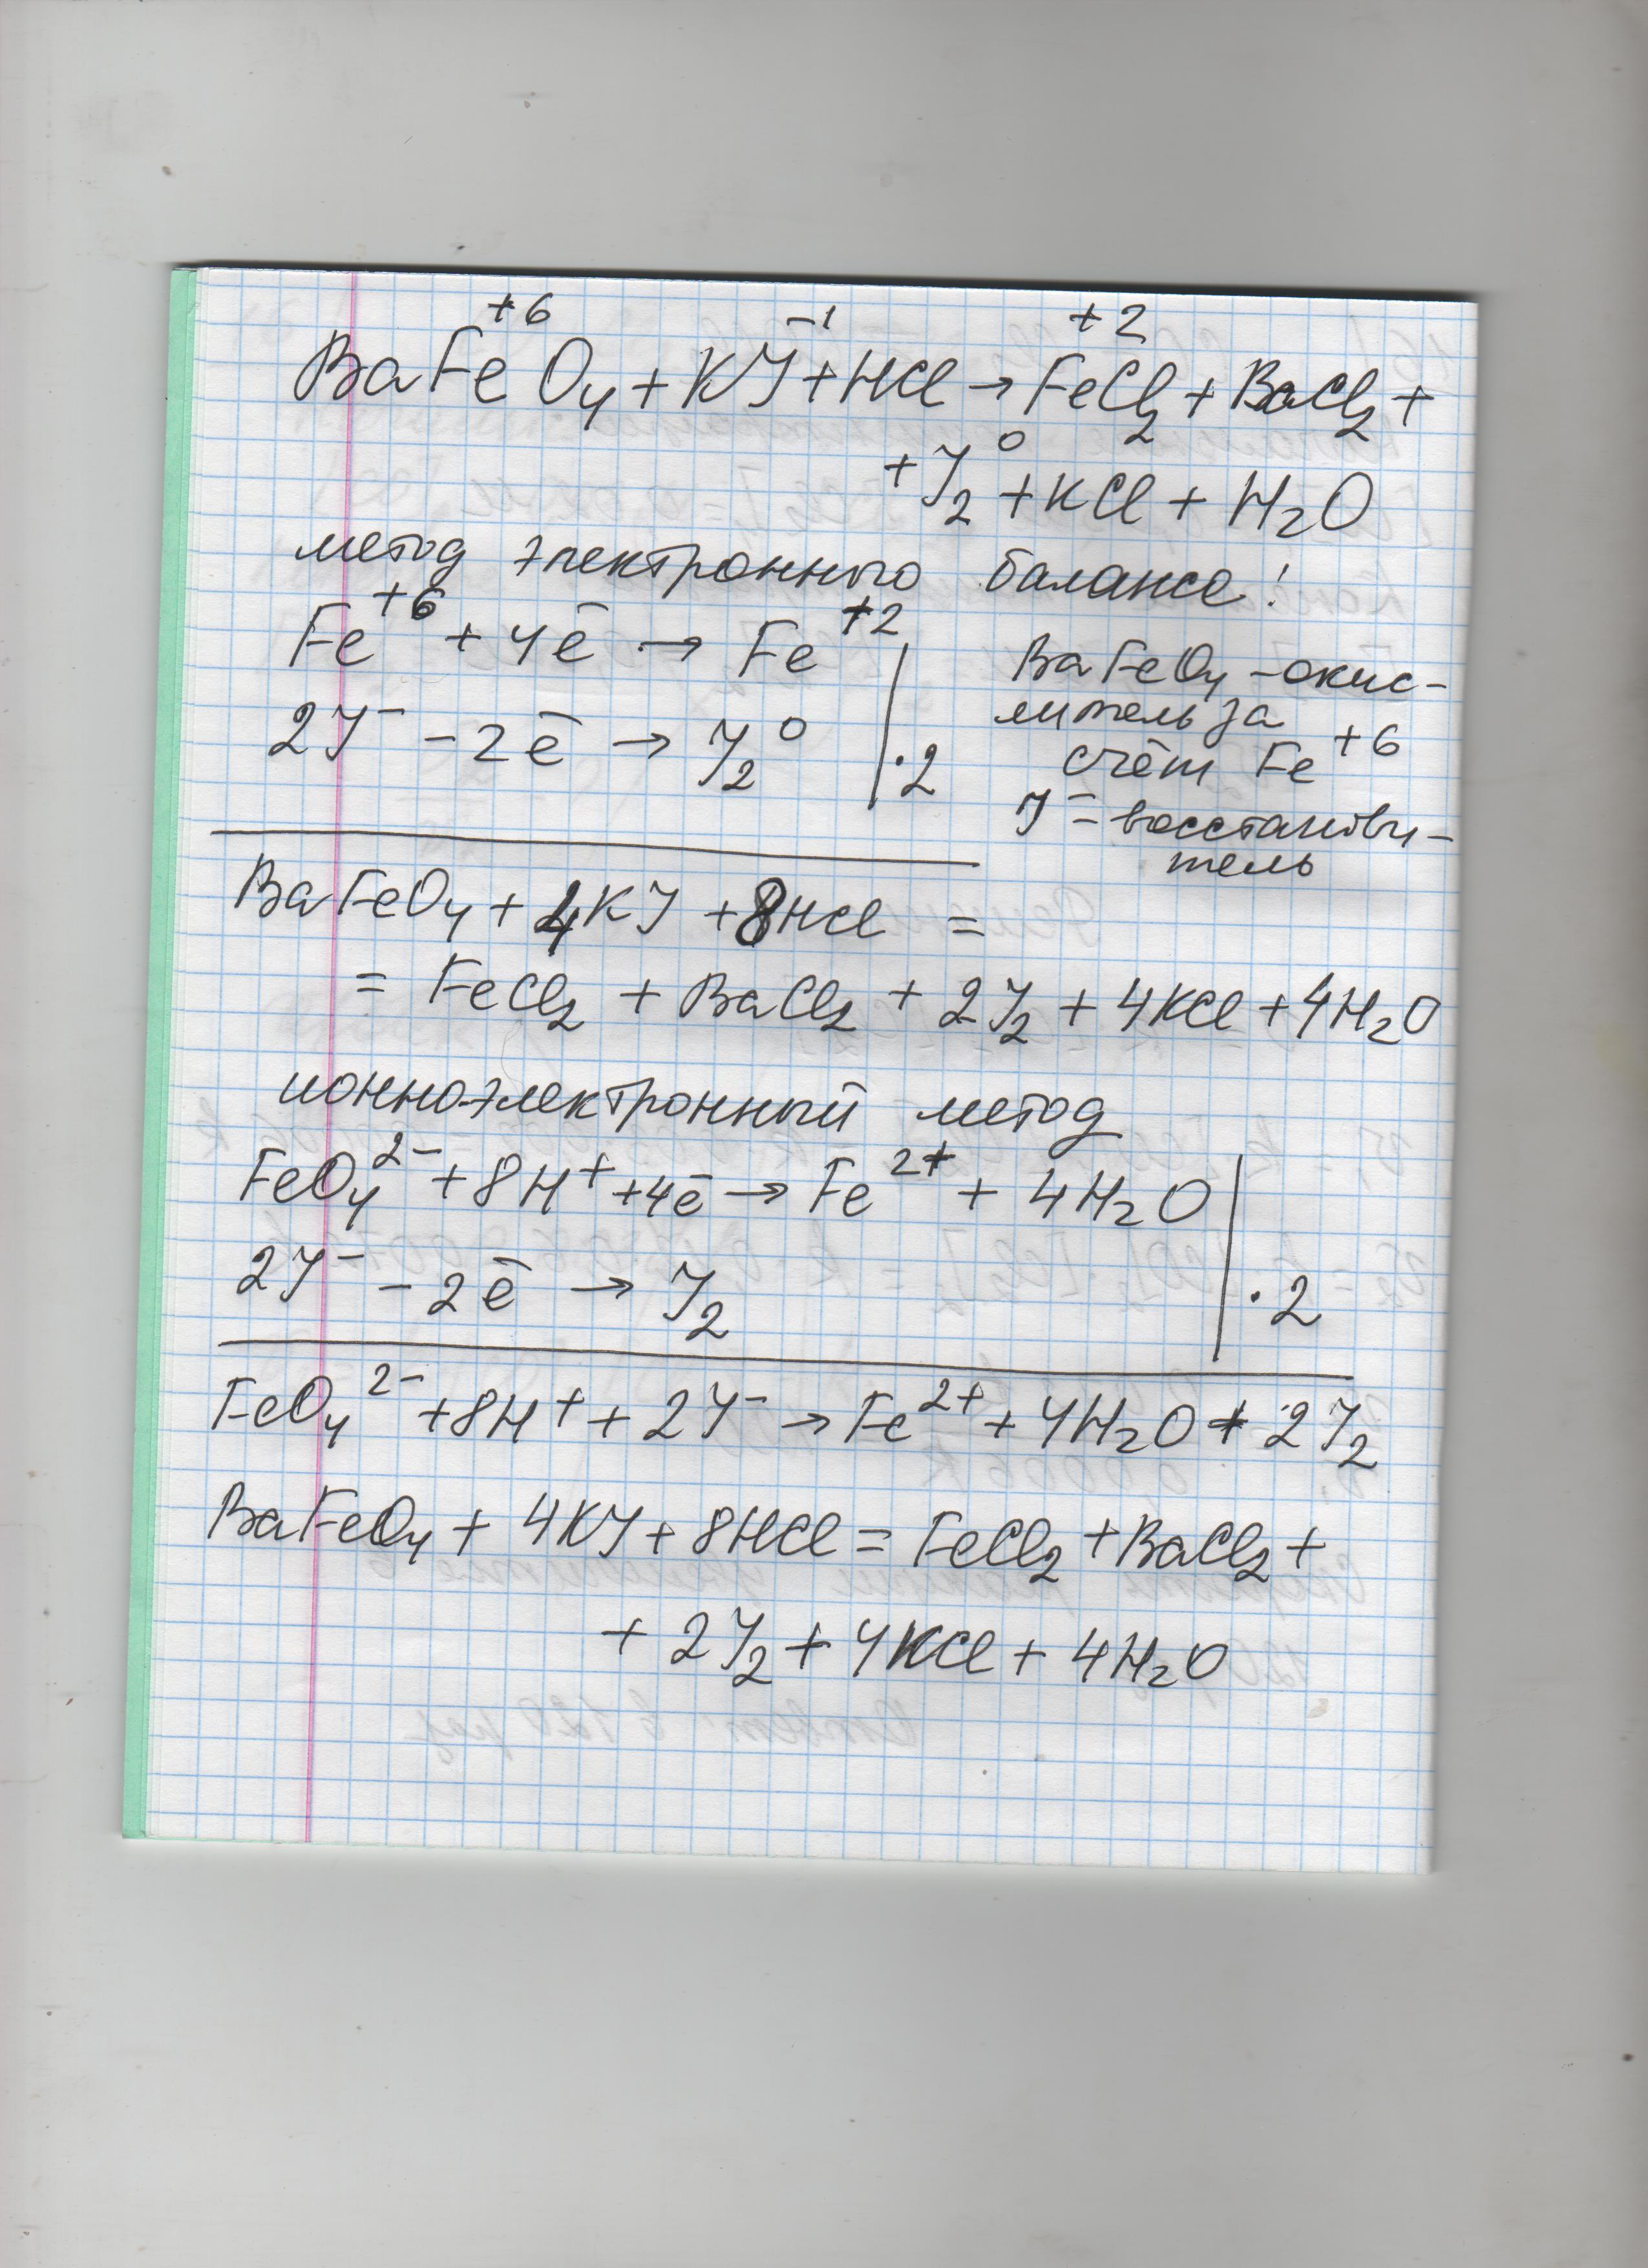 +6 -1 +2
BaFeO₄ + KJ + HCl → FeCl₂ + BaCl₂ +
+ J₂⁰ + KCl + H₂O
метод электронного баланса!
Fe⁺⁶ + 4ē → Fe⁺²
2J⁻ - 2ē → J₂⁰ | ·2
BaFeO₄ - окис-
литель за
счёт Fe⁺⁶
J⁻ - восстанови-
тель
BaFeO₄ + 4KJ + 8HCl =
= FeCl₂ + BaCl₂ + 2J₂ + 4KCl + 4H₂O
ионноэлектронный метод
FeO₄²⁻ + 8H⁺ + 4ē → Fe²⁺ + 4H₂O |
2J⁻ - 2ē → J₂ | ·2
FeO₄²⁻ + 8H⁺ + 2J⁻ → Fe²⁺ + 4H₂O + 2J₂
BaFeO₄ + 4KJ + 8HCl = FeCl₂ + BaCl₂ +
+ 2J₂ + 4KCl + 4H₂O